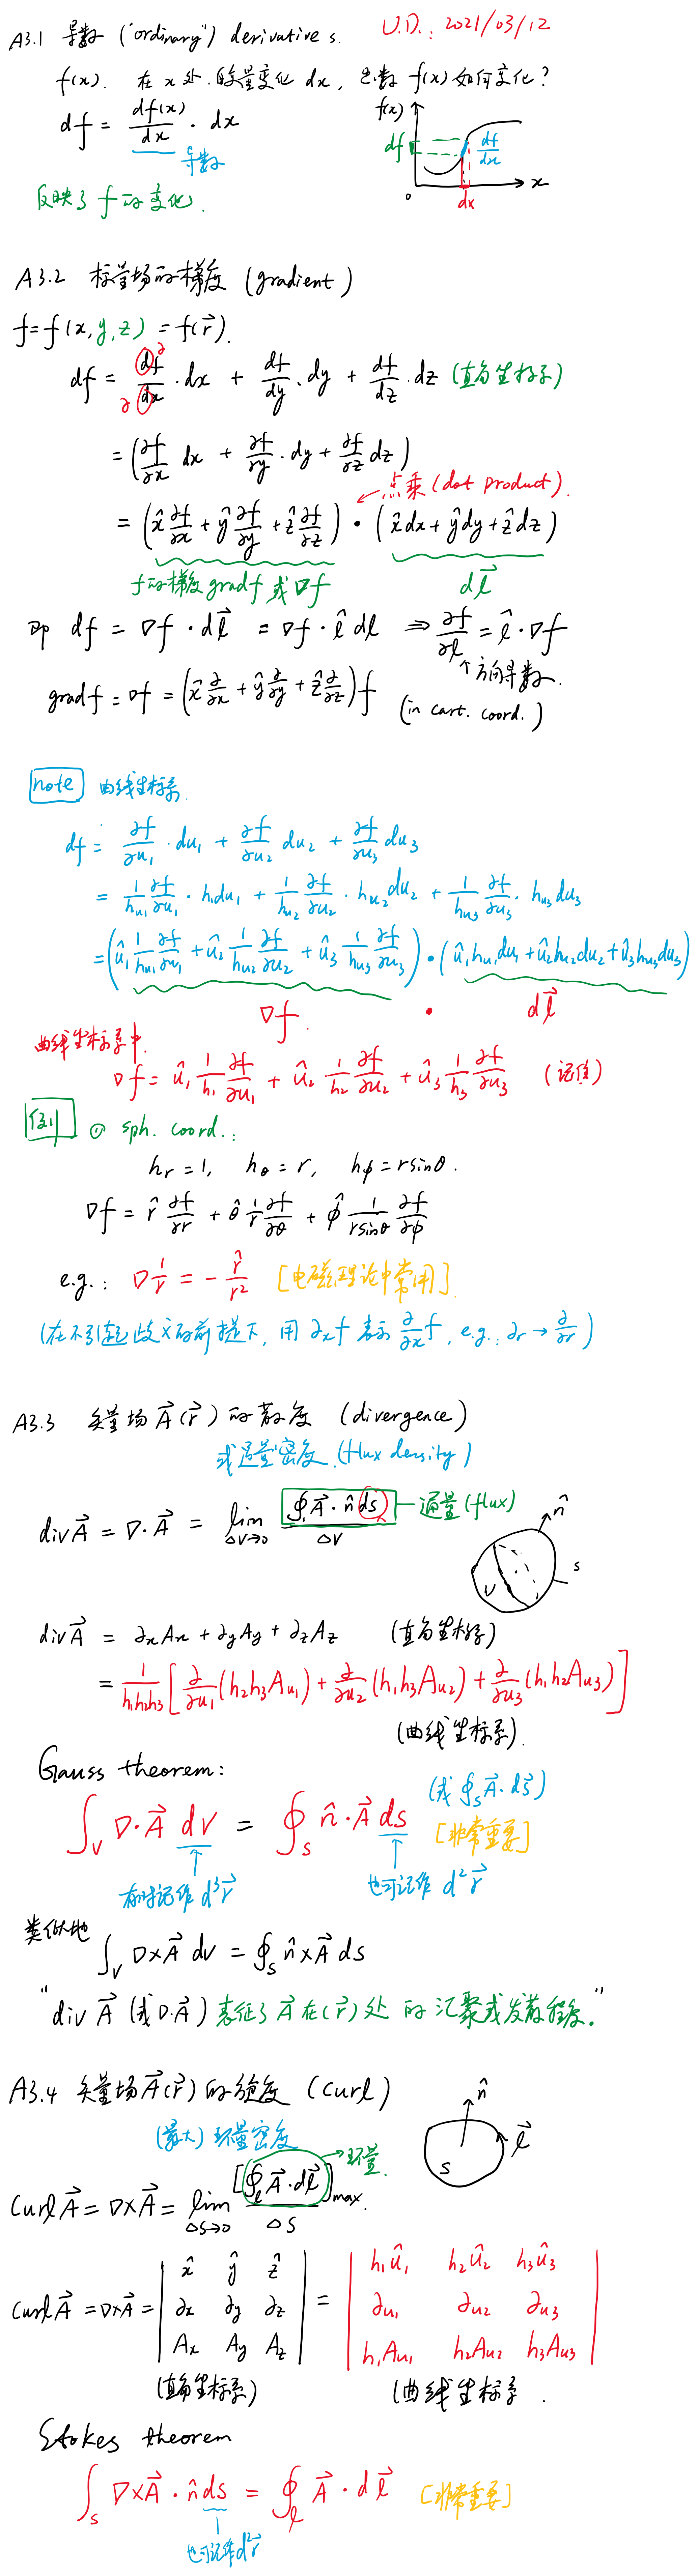 A3.1 导数 ("ordinary") derivatives. U.D.: 2021/03/12
f(x). 在 x 处的微量变化 dx, 函数 f(x) 如何变化?
df = \frac{df(x)}{dx} · dx
导数
反映了 f 的变化.
f(x)
df
\frac{df}{dx}
0 dx x
A3.2 标量场的梯度 (gradient)
f = f(x, y, z) = f(\vec{r}).
df = \frac{df}{dx} · dx + \frac{df}{dy} · dy + \frac{df}{dz} · dz (直角坐标系)
∂ ∂
= (\frac{∂f}{∂x} dx + \frac{∂f}{∂y} · dy + \frac{∂f}{∂z} dz)
点乘 (dot product).
= (\hat{x}\frac{∂f}{∂x} + \hat{y}\frac{∂f}{∂y} + \hat{z}\frac{∂f}{∂z}) · (\hat{x}dx + \hat{y}dy + \hat{z}dz)
f 的梯度 grad f 或 ∇f d\vec{l}
即 df = ∇f · d\vec{l} = ∇f · \hat{l} dl ⇒ \frac{∂f}{∂l} = \hat{l} · ∇f
↑方向导数.
grad f = ∇f = (\hat{x}\frac{∂}{∂x} + \hat{y}\frac{∂}{∂y} + \hat{z}\frac{∂}{∂z}) f (in cart. coord.)
note 曲线坐标系.
df = \frac{∂f}{∂u_1} · du_1 + \frac{∂f}{∂u_2} du_2 + \frac{∂f}{∂u_3} du_3
= \frac{1}{h_{u1}}\frac{∂f}{∂u_1} · h_1du_1 + \frac{1}{h_{u2}}\frac{∂f}{∂u_2} · h_{u2}du_2 + \frac{1}{h_{u3}}\frac{∂f}{∂u_3} · h_{u3}du_3
= (\hat{u}_1\frac{1}{h_{u1}}\frac{∂f}{∂u_1} + \hat{u}_2\frac{1}{h_{u2}}\frac{∂f}{∂u_2} + \hat{u}_3\frac{1}{h_{u3}}\frac{∂f}{∂u_3}) · (\hat{u}_1h_{u1}du_1 + \hat{u}_2h_{u2}du_2 + \hat{u}_3h_{u3}du_3)
∇f. · d\vec{l}
曲线坐标系中.
∇f = \hat{u}_1\frac{1}{h_1}\frac{∂f}{∂u_1} + \hat{u}_2 · \frac{1}{h_2}\frac{∂f}{∂u_2} + \hat{u}_3\frac{1}{h_3}\frac{∂f}{∂u_3} (记住)
例 ① sph. coord.:
h_r = 1, h_θ = r, h_φ = r sinθ.
∇f = \hat{r}\frac{∂f}{∂r} + \hat{θ}\frac{1}{r}\frac{∂f}{∂θ} + \hat{φ}\frac{1}{r sinθ}\frac{∂f}{∂φ}
e.g.: ∇\frac{1}{r} = -\frac{\hat{r}}{r^2} [电磁理论中常用].
(在不引起歧义的前提下, 用 ∂_x f 表示 \frac{∂}{∂x}f, e.g.: ∂_r → \frac{∂}{∂r})
A3.3 矢量场 \vec{A}(\vec{r}) 的散度 (divergence)
或通量密度.(flux density)
div\vec{A} = ∇·\vec{A} = \lim_{ΔV→0} \frac{∮_s \vec{A}·\hat{n} ds}{ΔV} 通量 (flux)
\hat{n}
V S
div\vec{A} = ∂_xA_x + ∂_yA_y + ∂_zA_z (直角坐标系)
= \frac{1}{h_1h_2h_3}[\frac{∂}{∂u_1}(h_2h_3A_{u1}) + \frac{∂}{∂u_2}(h_1h_3A_{u2}) + \frac{∂}{∂u_3}(h_1h_2A_{u3})]
(曲线坐标系).
Gauss theorem:
(或 ∮_s \vec{A}·d\vec{s})
∫_V ∇·\vec{A} dV = ∮_S \hat{n}·\vec{A} ds [非常重要]
有时记作 d^3\vec{r} 也可记作 d^2\vec{r}
类似地
∫_V ∇×\vec{A} dv = ∮_S \hat{n}×\vec{A} ds
"div \vec{A} (或 ∇·\vec{A}) 表征了 \vec{A} 在(\vec{r})处 的汇聚或发散程度."
A3.4 矢量场 \vec{A}(\vec{r}) 的旋度 (curl)
\hat{n}
S \vec{l}
(最大) 环量密度
→环量
Curl\vec{A} = ∇×\vec{A} = \lim_{ΔS→0} \frac{[∮_l \vec{A}·d\vec{l}]_{max}}{ΔS}.
Curl\vec{A} = ∇×\vec{A} = | \hat{x} \hat{y} \hat{z} | = | h_1\hat{u}_1 h_2\hat{u}_2 h_3\hat{u}_3 |
| ∂x ∂y ∂z | | ∂_{u1} ∂_{u2} ∂_{u3} |
| A_x A_y A_z | | h_1A_{u1} h_2A_{u2} h_3A_{u3} |
(直角坐标系) (曲线坐标系.
Stokes theorem
∫_S ∇×\vec{A}·\hat{n} ds = ∮_l \vec{A}·d\vec{l} [非常重要]
也可记作 d^2\vec{r}